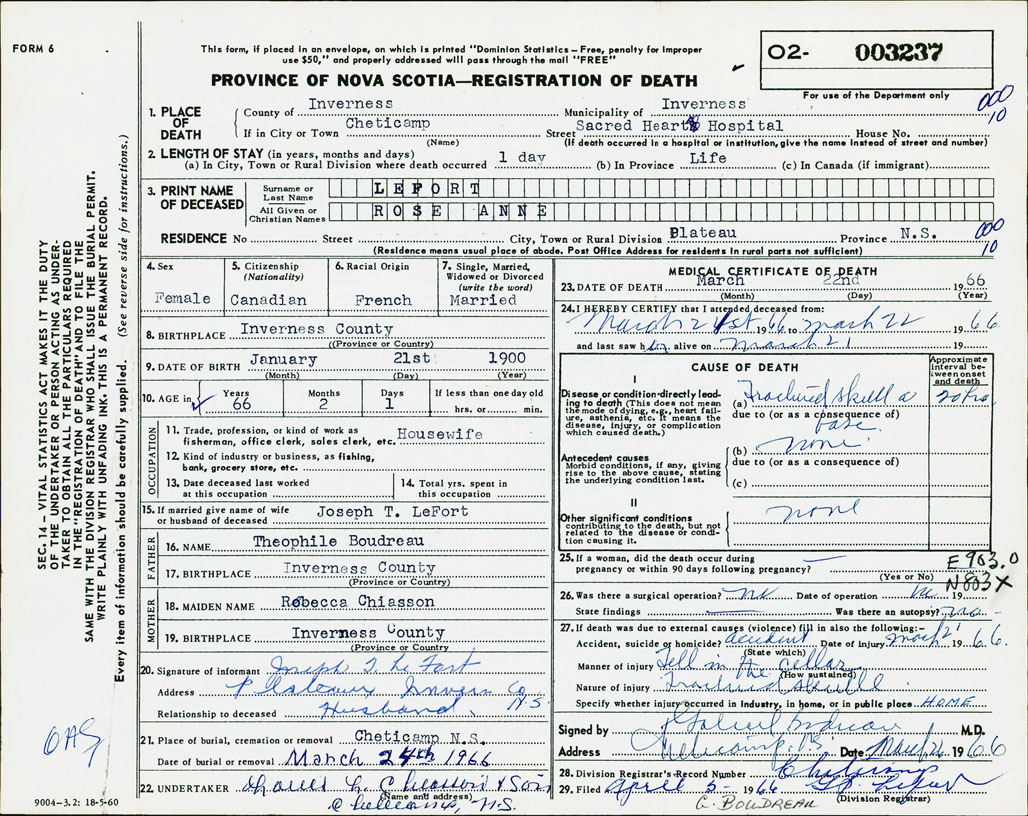 FORM 6
This form, if placed in an envelope, on which is printed "Dominion Statistics – Free, penalty for improper
use $50," and properly addressed will pass through the mail "FREE"
PROVINCE OF NOVA SCOTIA—REGISTRATION OF DEATH
O2- 003237
For use of the Department only
1. PLACE OF DEATH County of Inverness Municipality of Inverness 000 10
If in City or Town Cheticamp Street Sacred Heart Hospital House No.
(Name) (If death occurred in a hospital or institution, give the name instead of street and number)
2. LENGTH OF STAY (in years, months and days)
(a) In City, Town or Rural Division where death occurred 1 day (b) In Province Life (c) In Canada (if immigrant)
3. PRINT NAME OF DECEASED Surname or Last Name LEFORT
All Given or Christian Names ROSE ANNE
RESIDENCE No Street City, Town or Rural Division Plateau Province N.S. 000 10
(Residence means usual place of abode. Post Office Address for residents in rural parts not sufficient)
4. Sex Female
5. Citizenship (Nationality) Canadian
6. Racial Origin French
7. Single, Married, Widowed or Divorced (write the word) Married
8. BIRTHPLACE Inverness County
((Province or County)
9. DATE OF BIRTH January 21st 1900
(Month) (Day) (Year)
10. AGE in Years 66 Months 2 Days 1 If less than one day old hrs. or min.
OCCUPATION
11. Trade, profession, or kind of work as fisherman, office clerk, sales clerk, etc. Housewife
12. Kind of industry or business, as fishing, bank, grocery store, etc.
13. Date deceased last worked at this occupation
14. Total yrs. spent in this occupation
15. If married give name of wife or husband of deceased Joseph T. LeFort
FATHER
16. NAME Theophile Boudreau
17. BIRTHPLACE Inverness County
(Province or County)
MOTHER
18. MAIDEN NAME Rebecca Chiasson
19. BIRTHPLACE Inverness County
(Province or County)
20. Signature of informant Joseph T. Le Fort
Address Plateaux Invern Co N.S.
Relationship to deceased Husband.
OAS
21. Place of burial, cremation or removal Cheticamp N.S.
Date of burial or removal March 24th 1966
22. UNDERTAKER L. Chiasson & Son
(Name and address)
Cheticamp, N.S.
9004-3.2: 18-5-60
MEDICAL CERTIFICATE OF DEATH
23. DATE OF DEATH March 22nd 1966
(Month) (Day) (Year)
24. I HEREBY CERTIFY that I attended deceased from:
March 21st 1966 to March 22 1966
and last saw her alive on March 21 19
CAUSE OF DEATH
Approximate interval between onset and death
I
Disease or condition directly leading to death (This does not mean the mode of dying, e.g., heart failure, asthenia, etc. It means the disease, injury, or complication which caused death.)
(a) Fractured skull a base. 20 hrs
due to (or as a consequence of)
Antecedent causes
Morbid conditions, if any, giving rise to the above cause, stating the underlying condition last.
(b) none
due to (or as a consequence of)
(c)
II
Other significant conditions contributing to the death, but not related to the disease or condition causing it.
none
25. If a woman, did the death occur during pregnancy or within 90 days following pregnancy?
(Yes or No)
E 903.0
N803X
26. Was there a surgical operation? no Date of operation 19
State findings Was there an autopsy? no
27. If death was due to external causes (violence) fill in also the following:-
Accident, suicide or homicide? accident Date of injury March 21 1966.
(State which)
Manner of injury Fell in the cellar
(How sustained)
Nature of injury Fractured skull
Specify whether injury occurred in industry, in home, or in public place HOME
Signed by Gabriel Boudreau M.D.
Address Cheticamp, N.S. Date March 26 1966
28. Division Registrar's Record Number Cheticamp
29. Filed April 5- 1966
(Division Registrar)
G. BOUDREAU
SEC. 14 – VITAL STATISTICS ACT MAKES IT THE DUTY
OF THE UNDERTAKER OR PERSON ACTING AS UNDER-
TAKER TO OBTAIN ALL THE PARTICULARS REQUIRED
IN THE "REGISTRATION OF DEATH" AND TO FILE THE
SAME WITH THE DIVISION REGISTRAR WHO SHALL ISSUE THE BURIAL PERMIT.
WRITE PLAINLY WITH UNFADING INK. THIS IS A PERMANENT RECORD.
Every item of information should be carefully supplied. (See reverse side for instructions.)